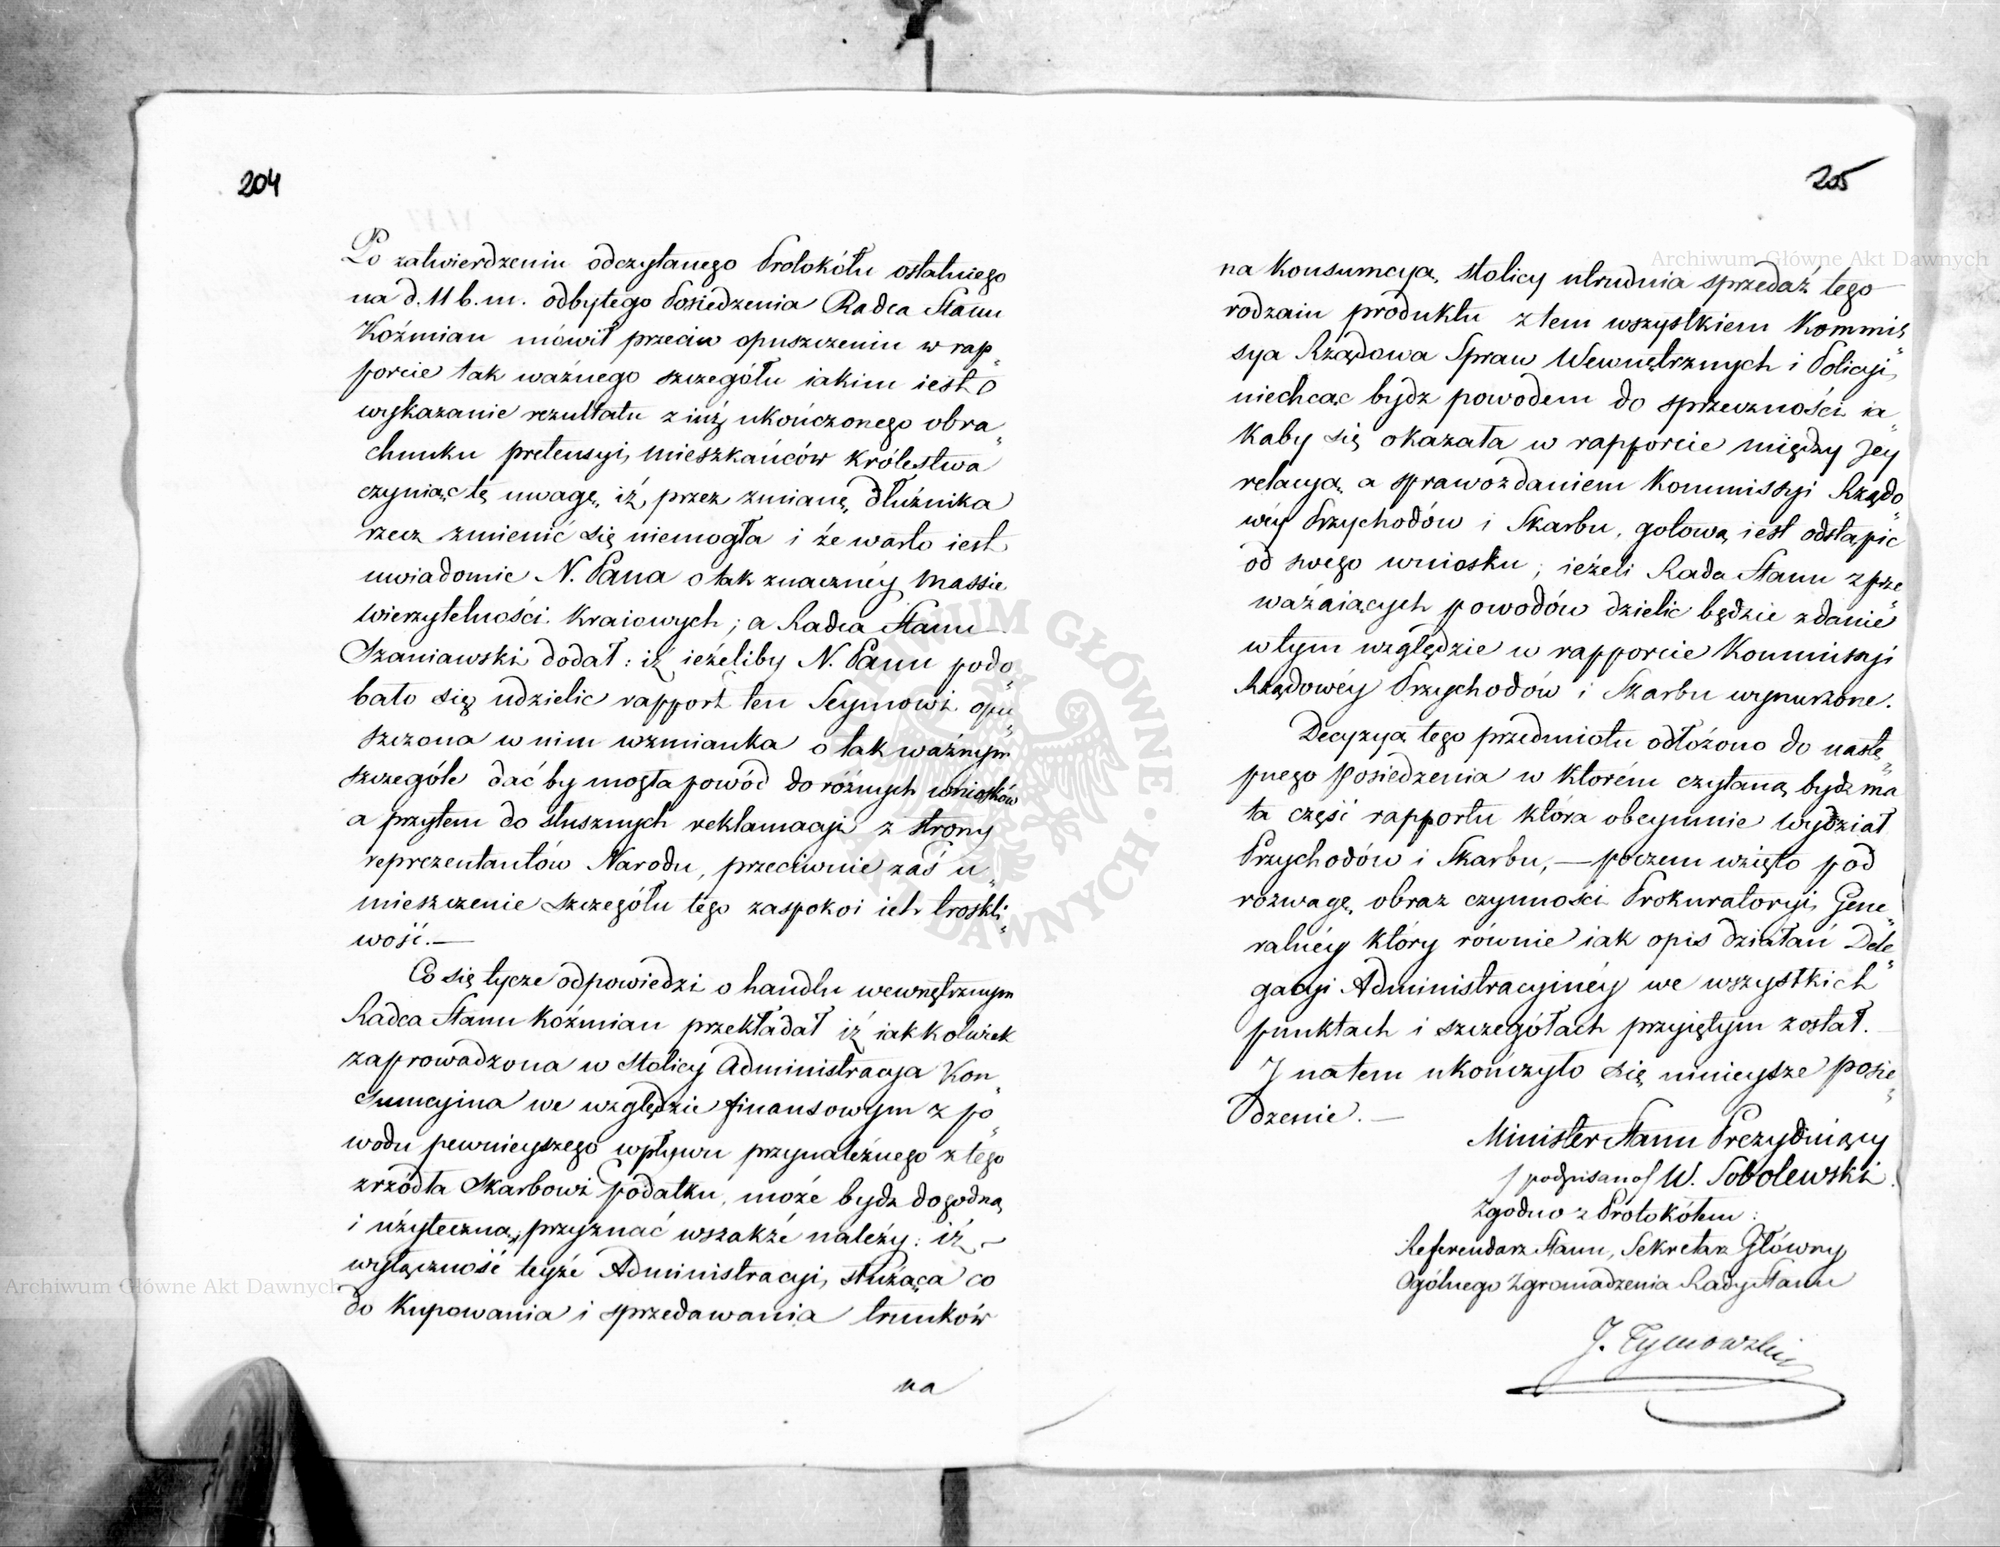 204
Po zatwierdzeniu odczytanego Protokółu ostatniego
na d. 11 b. m. odbytego Posiedzenia Radca Stanu
Koźmian mówił przeciw opuszczeniu w rap„
porcie tak ważnego szczegółu iakim iest
wykazanie rezultatu z iuż ukończonego obra„
chunku pretensyi mieszkańców królestwa
czyniąc tę uwagę, iż przez zmianę dłużnika
rzecz zmienić się niemogła i że warto iest
uwiadomić N. Pana o tak znacznéy Massie
wierzytelności kraiowych; a Radca Stanu
Szaniawski dodał: iż ieżeliby N. Panu podo„
bało się udzielić rapport ten Seymowi opu„
szczona w nim wzmianka o tak ważnym
szczególe dać by mogła powód do różnych wniosków
a przytem do słusznych reklamacyi z strony
reprezentantów Narodu, przeciwnie zaś u„
mieszczenie szczegółu tego zaspokoi ich troskli„
wość.—
Co się tycze odpowiedzi o handlu wewnętrznym
Radca Stanu Koźmian przekładał iż iakkolwiek
zaprowadzona w stolicy Administracya Kon„
sumcyina we względzie finansowym z po„
wodu pewnieyszego wpływu przynależnego z tego
zrzódła Skarbowi podatku, może bydz dogodną
i użyteczną, przyznać wszakże należy: iż
wyłączność teyże Administracyi, służąca co
do kupowania i sprzedawania trunków
na
205
na Konsumcyą stolicy utrudnia sprzedaż tego
rodzaiu produktu z tem wszystkiem Kommis„
sya Rządowa Spraw Wewnętrznych i Policyi
niechcąc bydz powodem do sprzeczności ia„
kaby się okazała w rapporcie między Jey
relacyą a sprawozdaniem Kommissyi Rządo„
wéy Przychodów i Skarbu, gotową iest odstąpić
od swego wniosku; ieżeli Rada Stanu z prze„
ważaiących powodów dzielić będzie zdanie
w tym względzie w rapporcie Kommissyi
Rządowéy Przychodów i Skarbu wynurzone.
Decyzyą tego przedmiotu odłożono do nastę„
pnego Posiedzenia w którém czytaną bydz ma
ta część rapportu która obeymuie Wydział
Przychodów i Skarbu,— poczem wzięto pod
rozwagę, obraz czynności Prokuratoryi Gene„
ralnéy który równie iak opis działań Dele„
gacyi Administracyinéy we wszystkich
punktach i szczegółach przyiętym został.
I na tem ukończyło się ninieysze posie„
dzenie.—
Minister Stanu Prezyduiący
/podpisano/ W. Sobolewski.
Zgodno z Protokółem:
Referendarz Stanu, Sekretarz Główny
Ogólnego Zgromadzenia Rady Stanu
J. Tymowski
Archiwum Główne Akt Dawnych
Archiwum Główne Akt Dawnych
ARCHIWUM GŁÓWNE AKT DAWNYCH